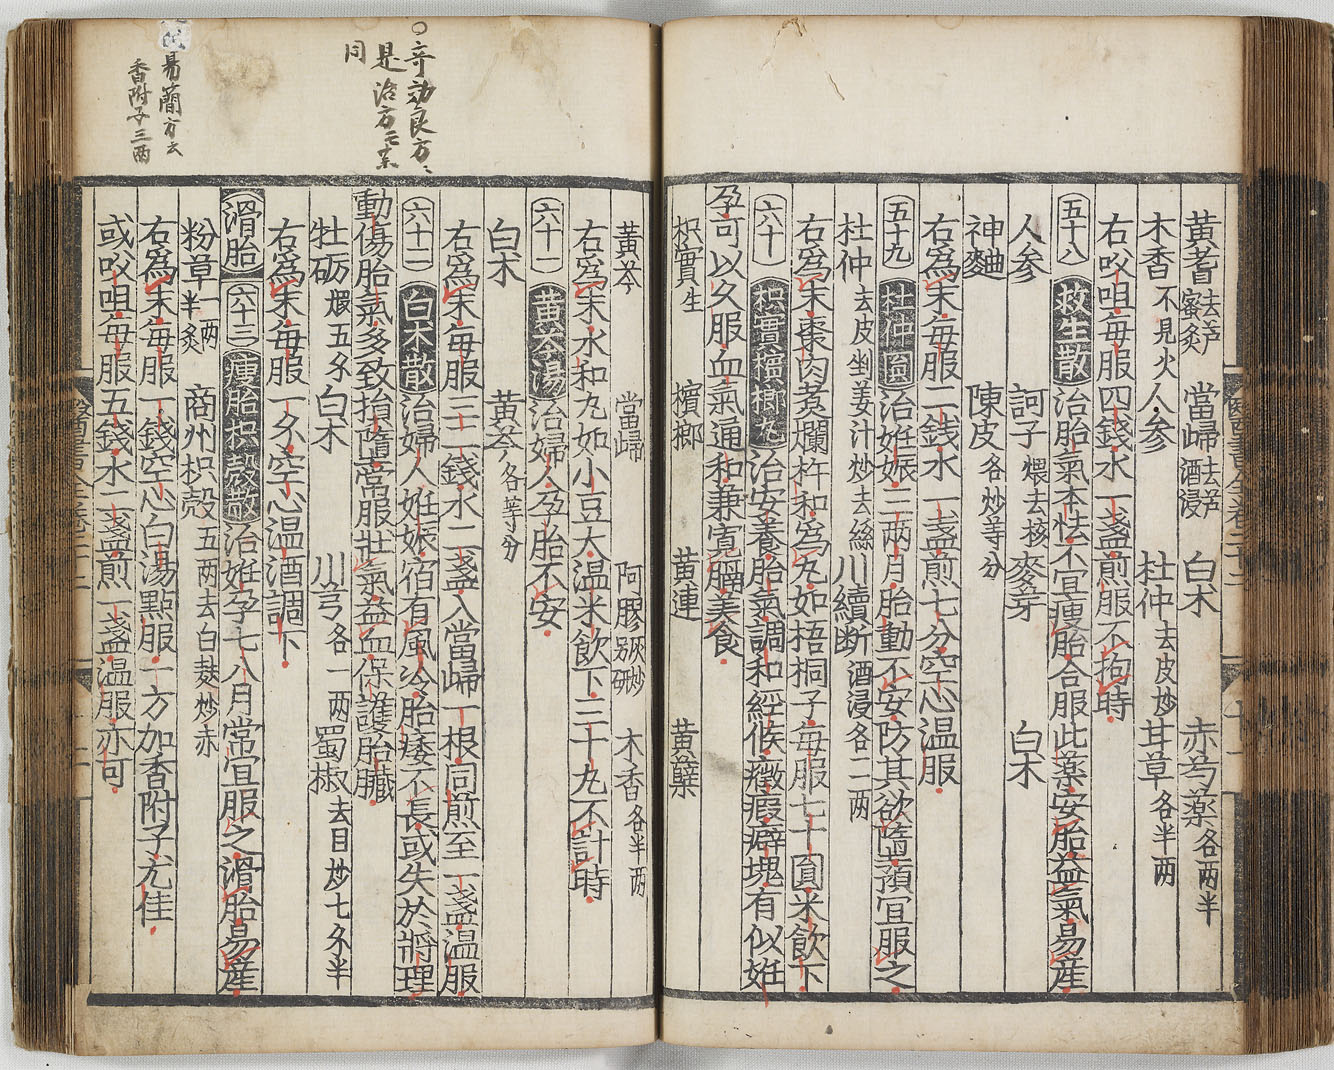 黃蓍去芦蜜炙 當歸去芦酒浸 白朮 赤芍藥各兩半
木香不見火 人參 杜仲去皮炒 甘草各半兩
右㕮咀每服四錢水一盞煎服不拘時
五十八 救生散 治胎氣本怯不宜瘦胎合服此藥安胎益氣易産
人參 訶子煨去核 麥芽 白朮
神麯 陳皮各炒等分
右爲末每服二錢水一盞煎七分空心温服
五十九 杜冲圓 治妊娠二兩月胎動不安防其欲墮預宜服之
杜仲去皮剉姜汁炒去絲 川續断酒浸各二两
右爲末棗肉煑爛杵和爲丸如梧桐子每服七十圓米飲下
六十 枳實檳榔丸 治安養胎氣調和經候癥瘕癖塊有似妊
孕可以久服血氣通和兼寛膈美食
枳實生 檳榔 黄連 黄蘗
黃芩 當歸 阿膠 木香各半两
右爲末水和丸如小豆大温米飲下三十丸不計時
六十一 黄芩湯 治婦人孕胎不安
白朮 黄芩各等分
右爲末每服三二錢水二盞入當歸一根同煎至一盞温服
六十二 白朮散 治婦人妊娠宿有風冷胎痿不長或失於將理
動傷胎氣多致損墮常服壮氣益血保護胎臟
牡礪煆五分 白朮 川芎各一两 蜀椒去目炒七分半
右爲末每服一分空心温酒調下
滑胎 六十三 瘦胎枳殻散 治妊孕七八月常宜服之滑胎易産
粉草一两半炙 商州枳殻五两去白麸炒赤
右爲末每服一錢空心白湯點服一方加香附子尤佳
或㕮咀每服五錢水二盞煎一盞温服亦可
○竒効良方
是治方
同
易簡方云
香附子三两